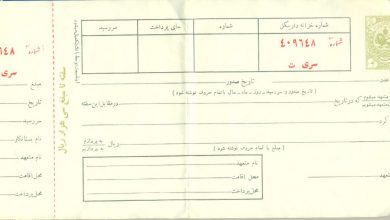 شماره خزانه داریکل
شماره
جای پرداخت
سررسید
شماره ۴۰۹۶۴۸
سری ت
تاریخ صدور
( تاریخ صدور و سررسید ـ روز ـ ماه ـ سال باتمام حروف نوشته شود )
که در تاریخ
در مقابل این سفته
ریال
( مبلغ با تمام حروف نوشته شود )
نام متعهد
محل اقامت
محل پرداخت
سفته تا مبلغ سی هزار ریال
شماره
سری
مبلغ
تاریخ
سررسید
نام بستانکار
نام متعهد
محل اقامت
محل پرداخت